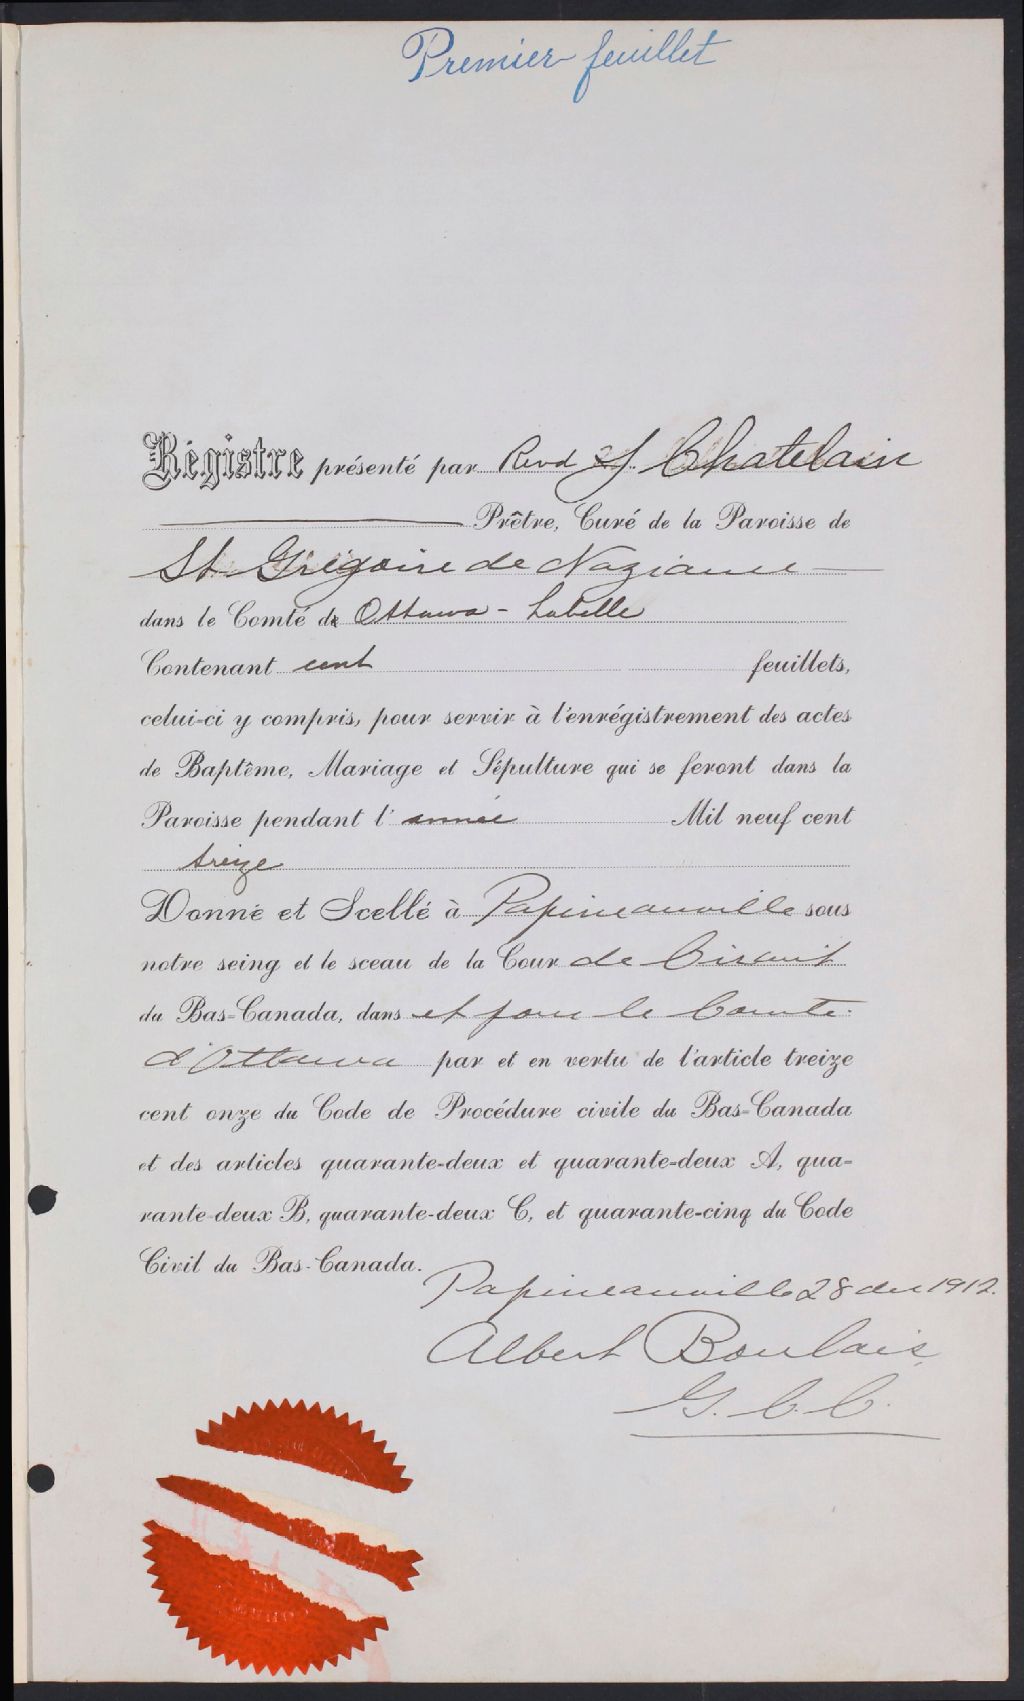 Premier feuillet
Régistre présenté par Revd J. Chatelain
Prêtre, Curé de la Paroisse de
St Grégoire de Nazianze
dans le Comté de Ottawa - Labelle
Contenant cent feuillets,
celui-ci y compris, pour servir à l'enrégistrement des actes
de Baptême, Mariage et Sépulture qui se feront dans la
Paroisse pendant l'année Mil neuf cent
treize
Donné et Scellé à Papineauville sous
notre seing et le sceau de la Cour de Circuit
du Bas-Canada, dans et pour le Comte
d'Ottawa par et en vertu de l'article treize
cent onze du Code de Procédure civile du Bas-Canada
et des articles quarante-deux et quarante-deux A, qua-
rante-deux B, quarante-deux C, et quarante-cinq du Code
Civil du Bas-Canada.
Papineauville 28 dec 1912.
Albert Boulais
G. C. C.